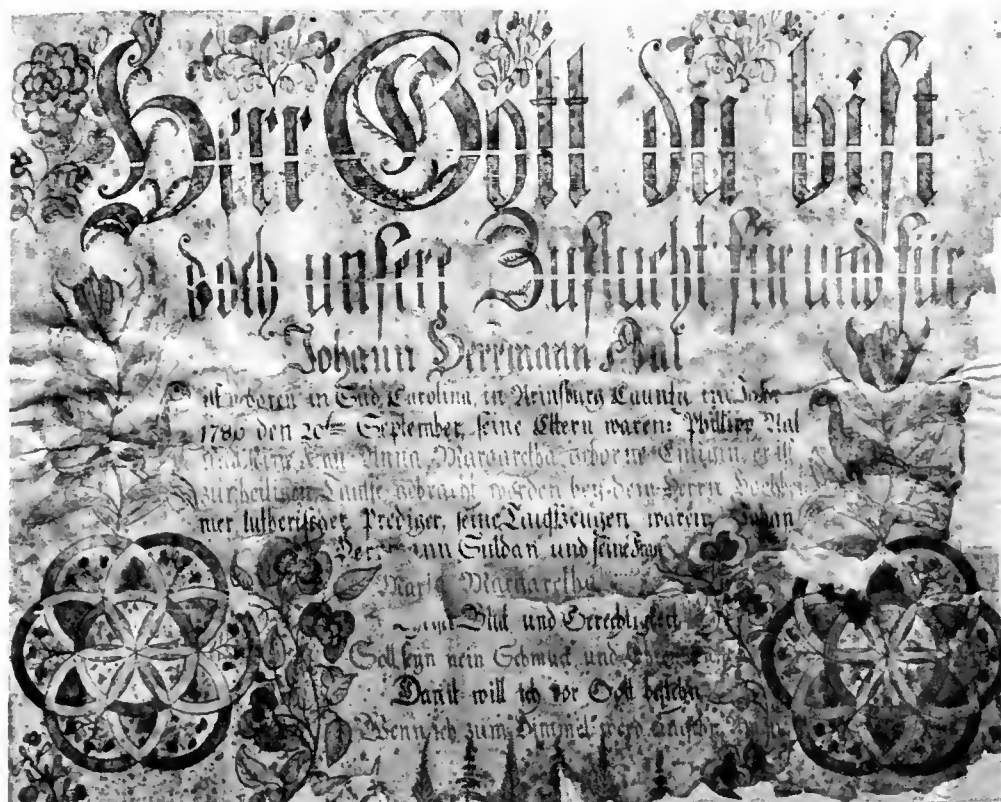 Herr Gott du bist
doch unsere Zuflucht für und für
Johann Herrmann
ist geboren in Süd Carolina, in County im Jahr
den 20ten September, seine Eltern waren: Phillipp
und Frau Anna Margaretha, geborne er ist
zur heiligen Taufe gebracht worden bey dem Herrn
lutherischer Prediger, seine Taufzeugen waren, Johan
und seine Frau
Maria Margaretha
Blut und Gerechtigkeit
Soll seyn mein Schmuck und
Damit will ich vor Gott bestehn
Wenn ich zum Himmel werd